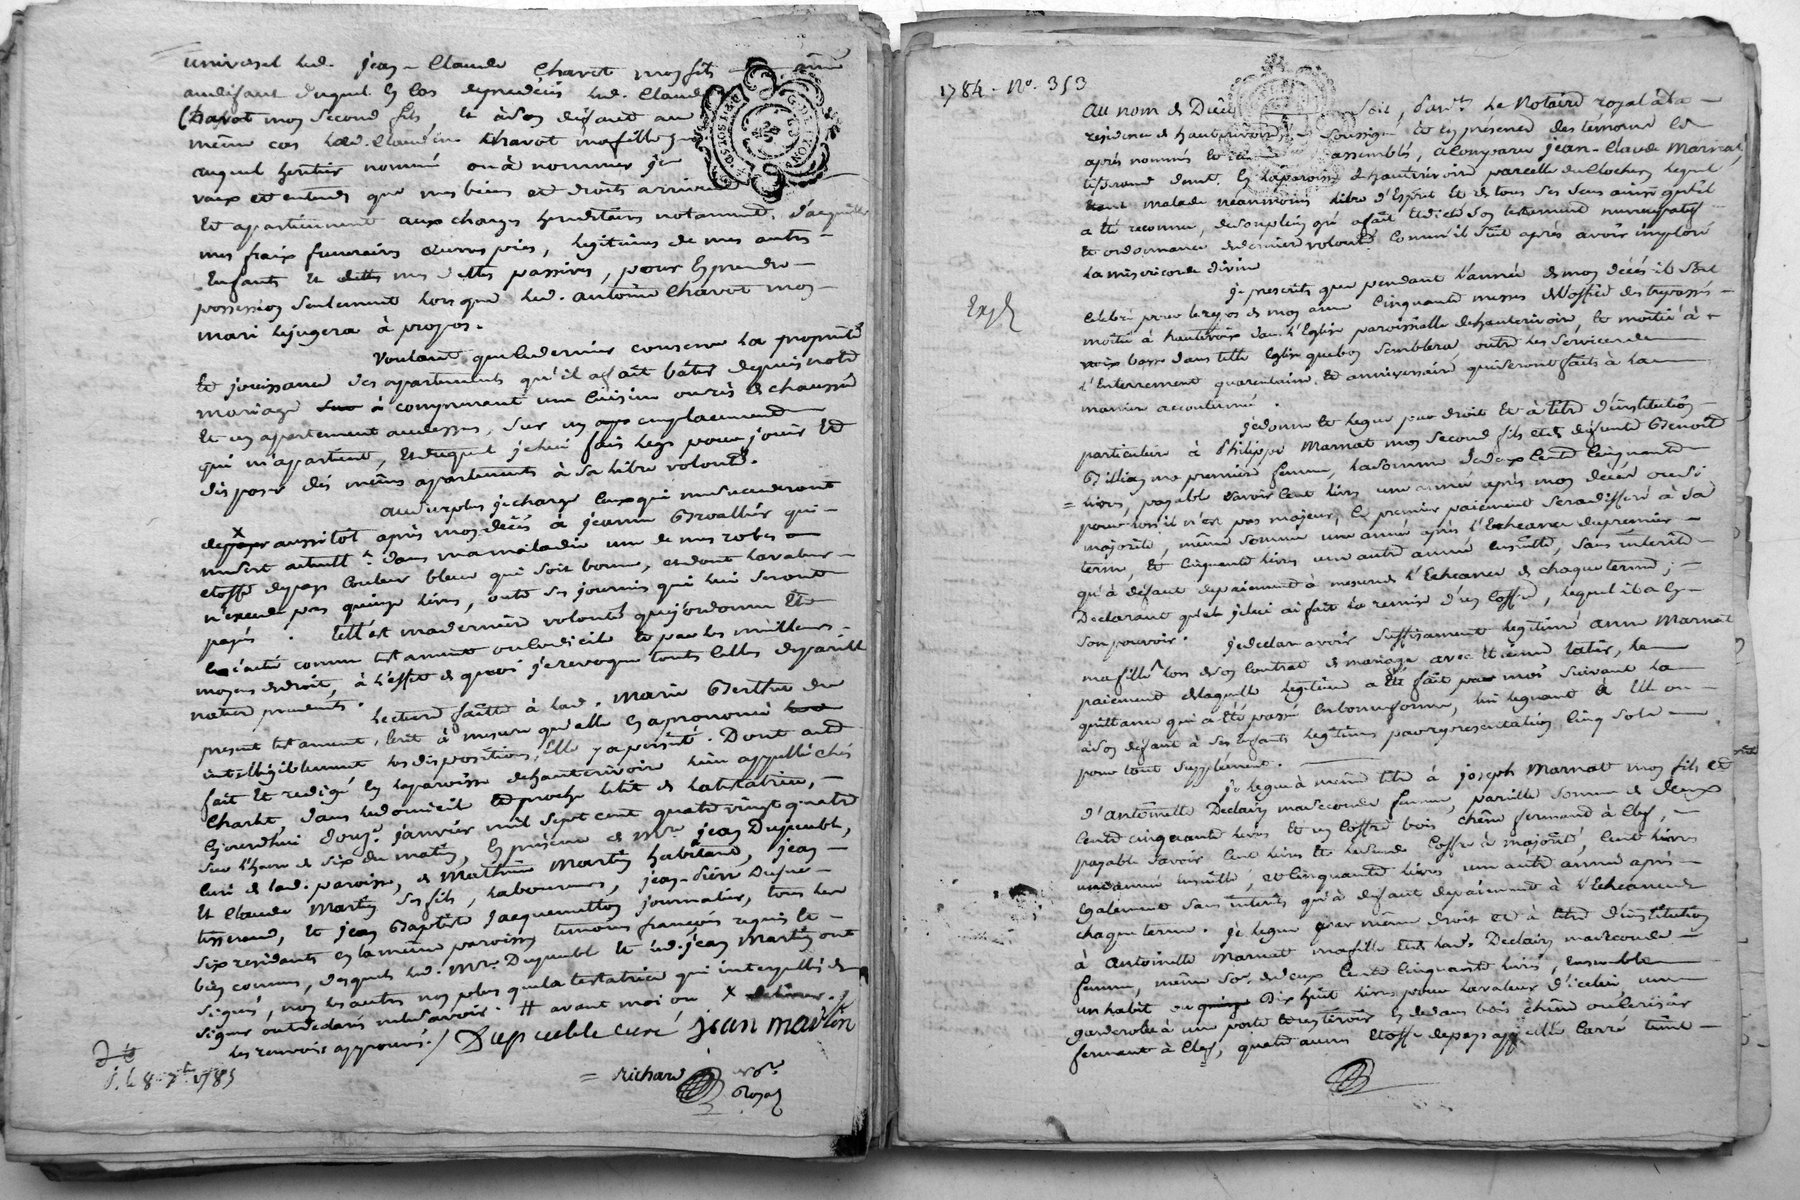 universel led. jean-Claude Chavot mon fils
au défaut duquel les led. Claude
Chavot mon second fils, et à son défaut au
même cas lad. Claudine Chavot ma fille
auquel heritier nommé ou à nommer je
veux et entends que mes biens et droits arrivent
et apartiennent aux charges hereditaires notamment d'acquitter
mes frais funeraires œuvres pies, legitimes de mes autres
enfants et mes dettes passives, pour en prendre
possession seulement lorsque led. antoine Chavot mon
mari le jugera à propos.
Voulant que le dernier conserve la propriété
et jouissance des apartements qu'il a fait bâtir depuis notre
mariage à comprenant une cuisine au rès de chaussée
et un apartement au dessus, sur un emplacement
qui m'appartient, et duquel je lui fais legs pour jouir et
disposer des mêmes apartements à sa libre volonté.
au surplus je charge ceux qui me succederont
aussitot après mon décès à jeanne qui
me sert actuell.t dans ma maladie une de mes robes
etoffe de pays couleur bleue qui soit bonne, et dont la valeur
n'excede pas quinze livres, outre ses journées qui lui seront
payés. telle est ma derniere volonté que j'ordonne être
exécutée comme testament ou codicile et par les meilleurs
moyens de droit, à l'effet de quoi je revoque toutes celles de pareille
nature precedents. lecture faitte à lad. Marie Berthe du
present testament, écrit à mesure qu'elle en a prononcé
intelligiblement les dispositions, elle y a persisté. Dont acte
fait et redigé en la paroisse de hauterivoire lieu appellé chés
Charlet dans le domicile et proche le lit de la testatrice,
cejourd'hui douze janvier mil sept cent quatre vingt quatre
sur l'heure de six du matin, en presence de Mre. jean Dupeuble,
curé de lad. paroisse, de Mathieu Martin habitant, jean
et Claude Martin ses fils, laboureurs, jean-pierre
tisserand, et jean Baptiste Jacquemetton journalier, tous les
six residants en la même paroisse temoins françois requis et
bien connus, desquels led. Mre. Dupeuble et led. jean Martin ont
signés, non les autres non plus que la testatrice qui interpellés de
signer ont declarés ne le savoir. # avant moi ou X
les renvois approuvés./. Dupeuble curé jean martin
= Richard nore.
Royal
1784. No. 353
Au nom de Dieu soit, pard.t le Notaire royal à la
residence de hauterivoire soussigné et en présence des témoins
après nommés et assemblés, a comparu jean-Claude Marnat,
tisserand demt. en la paroisse d'hauterivoire parcelle du Clocher, lequel
étant malade néanmoins libre d'esprit et de tous ses sens ainsi qu'il
a été reconnu, de son plein gré a fait et dicté son testament nuncupatif
et ordonnance de derniere volonté comme il suit après avoir imploré
la misericorde divine
je prescrits que pendant l'année de mon décès il soit
celebré pour le repos de mon ame cinquante messes de l'office des trepassés
moitié à hautevoix dans l'Eglise paroissialle de hauterivoire, et moitié à
voix basse dans telle eglise que bon semblera outre les services de
l'Enterrement quarentaine et anniversaire qui seront faits à la
maniere accoutumée.
je donne et legue par droit et à titre d'institution
particuliere à Philippe Marnat mon second fils et de défunte Benoite
Billias ma premiere femme, la somme de deux cents cinquante
livres, payable savoir cent livres une année après mon décès ou si
pour lors il n'est pas majeur, le premier paiement sera différé à sa
majorité, même somme une année après l'Echeance du premier
terme, et cinquante livres une autre année ensuitte, sans interêts
qu'à défaut de paiement à mesure de l'Echeance de chaque terme;
Declarant que je lui ai fait la remise d'un coffre, lequel il a en
son pouvoir. je declare avoir suffisament legitimé anne Marnat
ma fille lors de son contrat de mariage avec Etienne le
paiement de laquelle legitime a été fait par moi suivant la
quittance qui a été passé en bonne forme, lui leguant à elle ou
à son défaut à ses enfants legitimes par representation cinq sols
pour tout supplement.
je legue à même titre à joseph Marnat mon fils et
d'antoinette Declairy ma seconde femme, pareille somme de deux
cents cinquante livres et un coffre bois chêne fermant à clef,
payable savoir cent livres et led. coffre à majorité, cent livres
une année ensuitte, et cinquante livres une autre année après
egalement sans interêts qu'à défaut de paiement à l'Echeance de
chaque terme. je legue par même droit et à titre d'institution
à antoinette Marnat ma fille et de lad. Declairy ma seconde
femme, même some de deux cents cinquante livres, ensemble
un habit ou Dix huit livres pour la valeur d'icelui, une
garderobe à une porte et un tiroir en dedans bois chêne ou cerisier
fermant à clef, quatre aunes etoffe de pays appellée carré teint